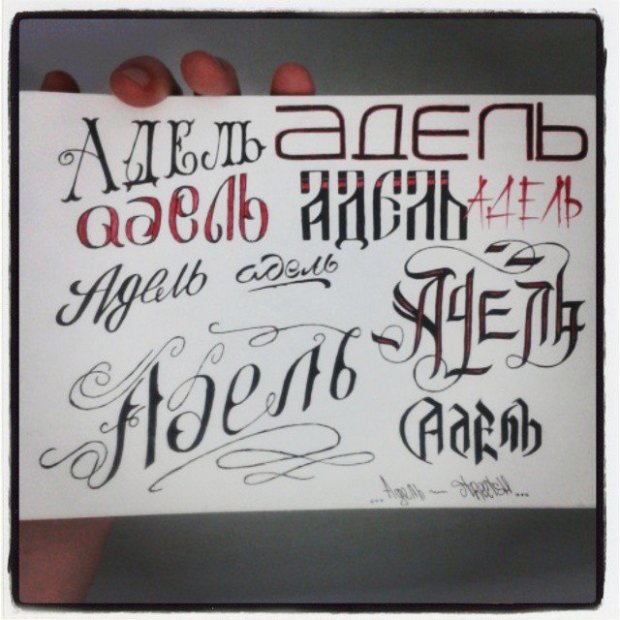 Адель
адель
адель
АДЕЛЬ
АДЕЛЬ
Адель
адель
АДЕЛЬ
Адель
Адель
...Адель —